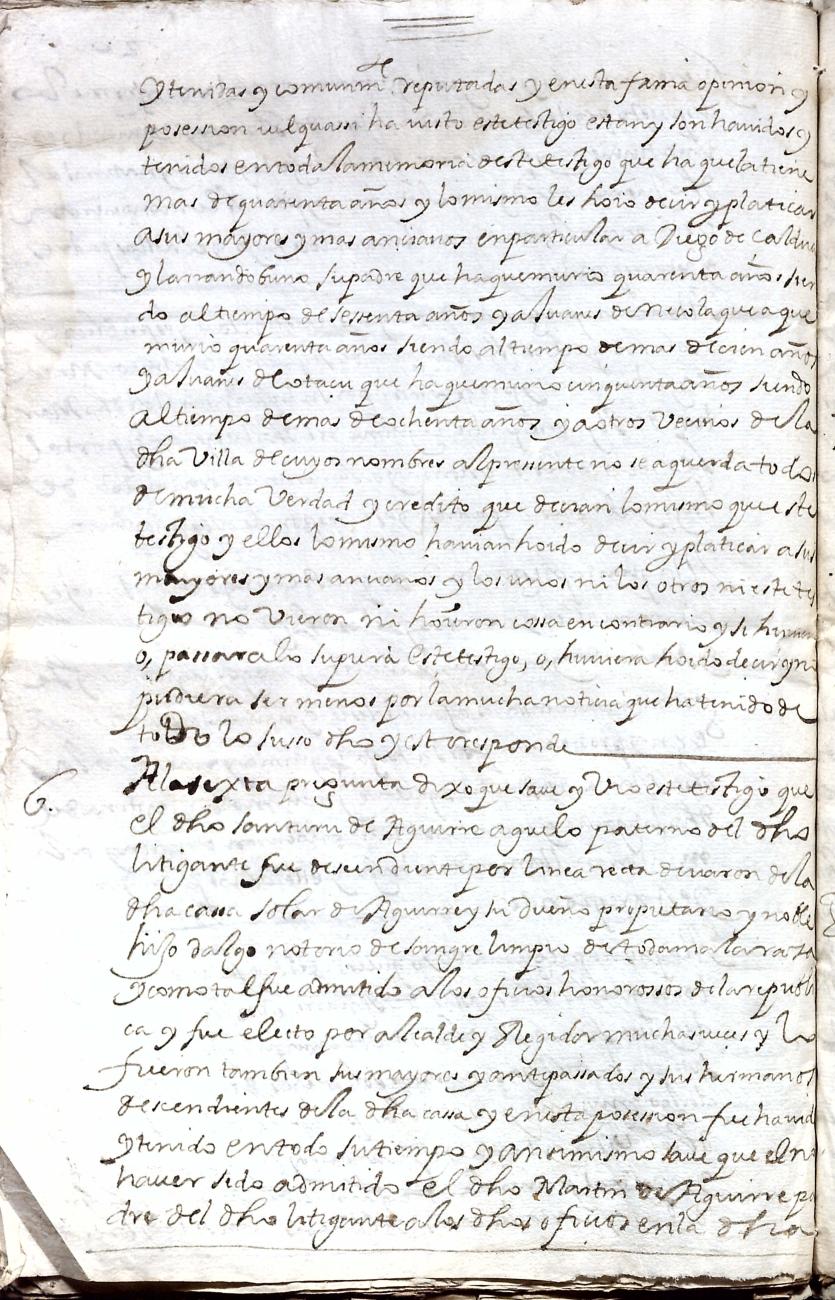 Ytenidas y comunmte reputadas y en esta fama opinion y
posession vel quassi ha visto este testigo estan y son havidos y
tenidos en toda la memoria deste testigo que ha que la tiene
mas de quarenta años y lo mismo les hoio decir y platicar
a sus mayores y mas ancianos en particular a Diego de
y su padre que ha que murio quarenta años sien
do al tiempo de sessenta años y a Juanes de Necola que a que
murio quarenta años siendo al tiempo de mas de cien años
y a Juanes de Otacu que ha que murio cinquenta años siendo
al tiempo de mas de ochenta años y a otros Vecinos de la
dha Villa de cuyos nombres al presente no se aquerda todos
de mucha Verdad y credito que decian lo mismo que este
testigo y ellos lo mismo havian hoido decir y platicar a sus
mayores y mas ancianos y los unos ni los otros ni este tes
tigo no Vieron ni hoieron cossa en contrario y si huviera
o, passara lo supiera este testigo, o, huviera hoido decir y no
pudiera ser menos por la mucha noticia que ha tenido de
todo lo susso dho y esto responde
6. A la sexta pregunta dixo que save y Vio este testigo que
el dho Santuru de Aguirre aguelo paterno del dho
litigante fue descendiente por linea recta de varon de la
dha cassa solar de Aguirre y su dueño propietario y noble
hijo dalgo notorio de sangre limpio de toda mala raza
y como tal fue admitido a los oficios honorossos de la republi
ca y fue electo por alcalde y Regidor muchas veces y lo
fueron tambien sus mayores y antepassados y sus hermanos
descendientes de la dha cassa y en esta posession fue havid
y tenido en todo su tiempo y ansimismo save que el no
haver sido admitido el dho Martin de Aguirre pa
dre del dho litigante a los dhos oficios en la dha